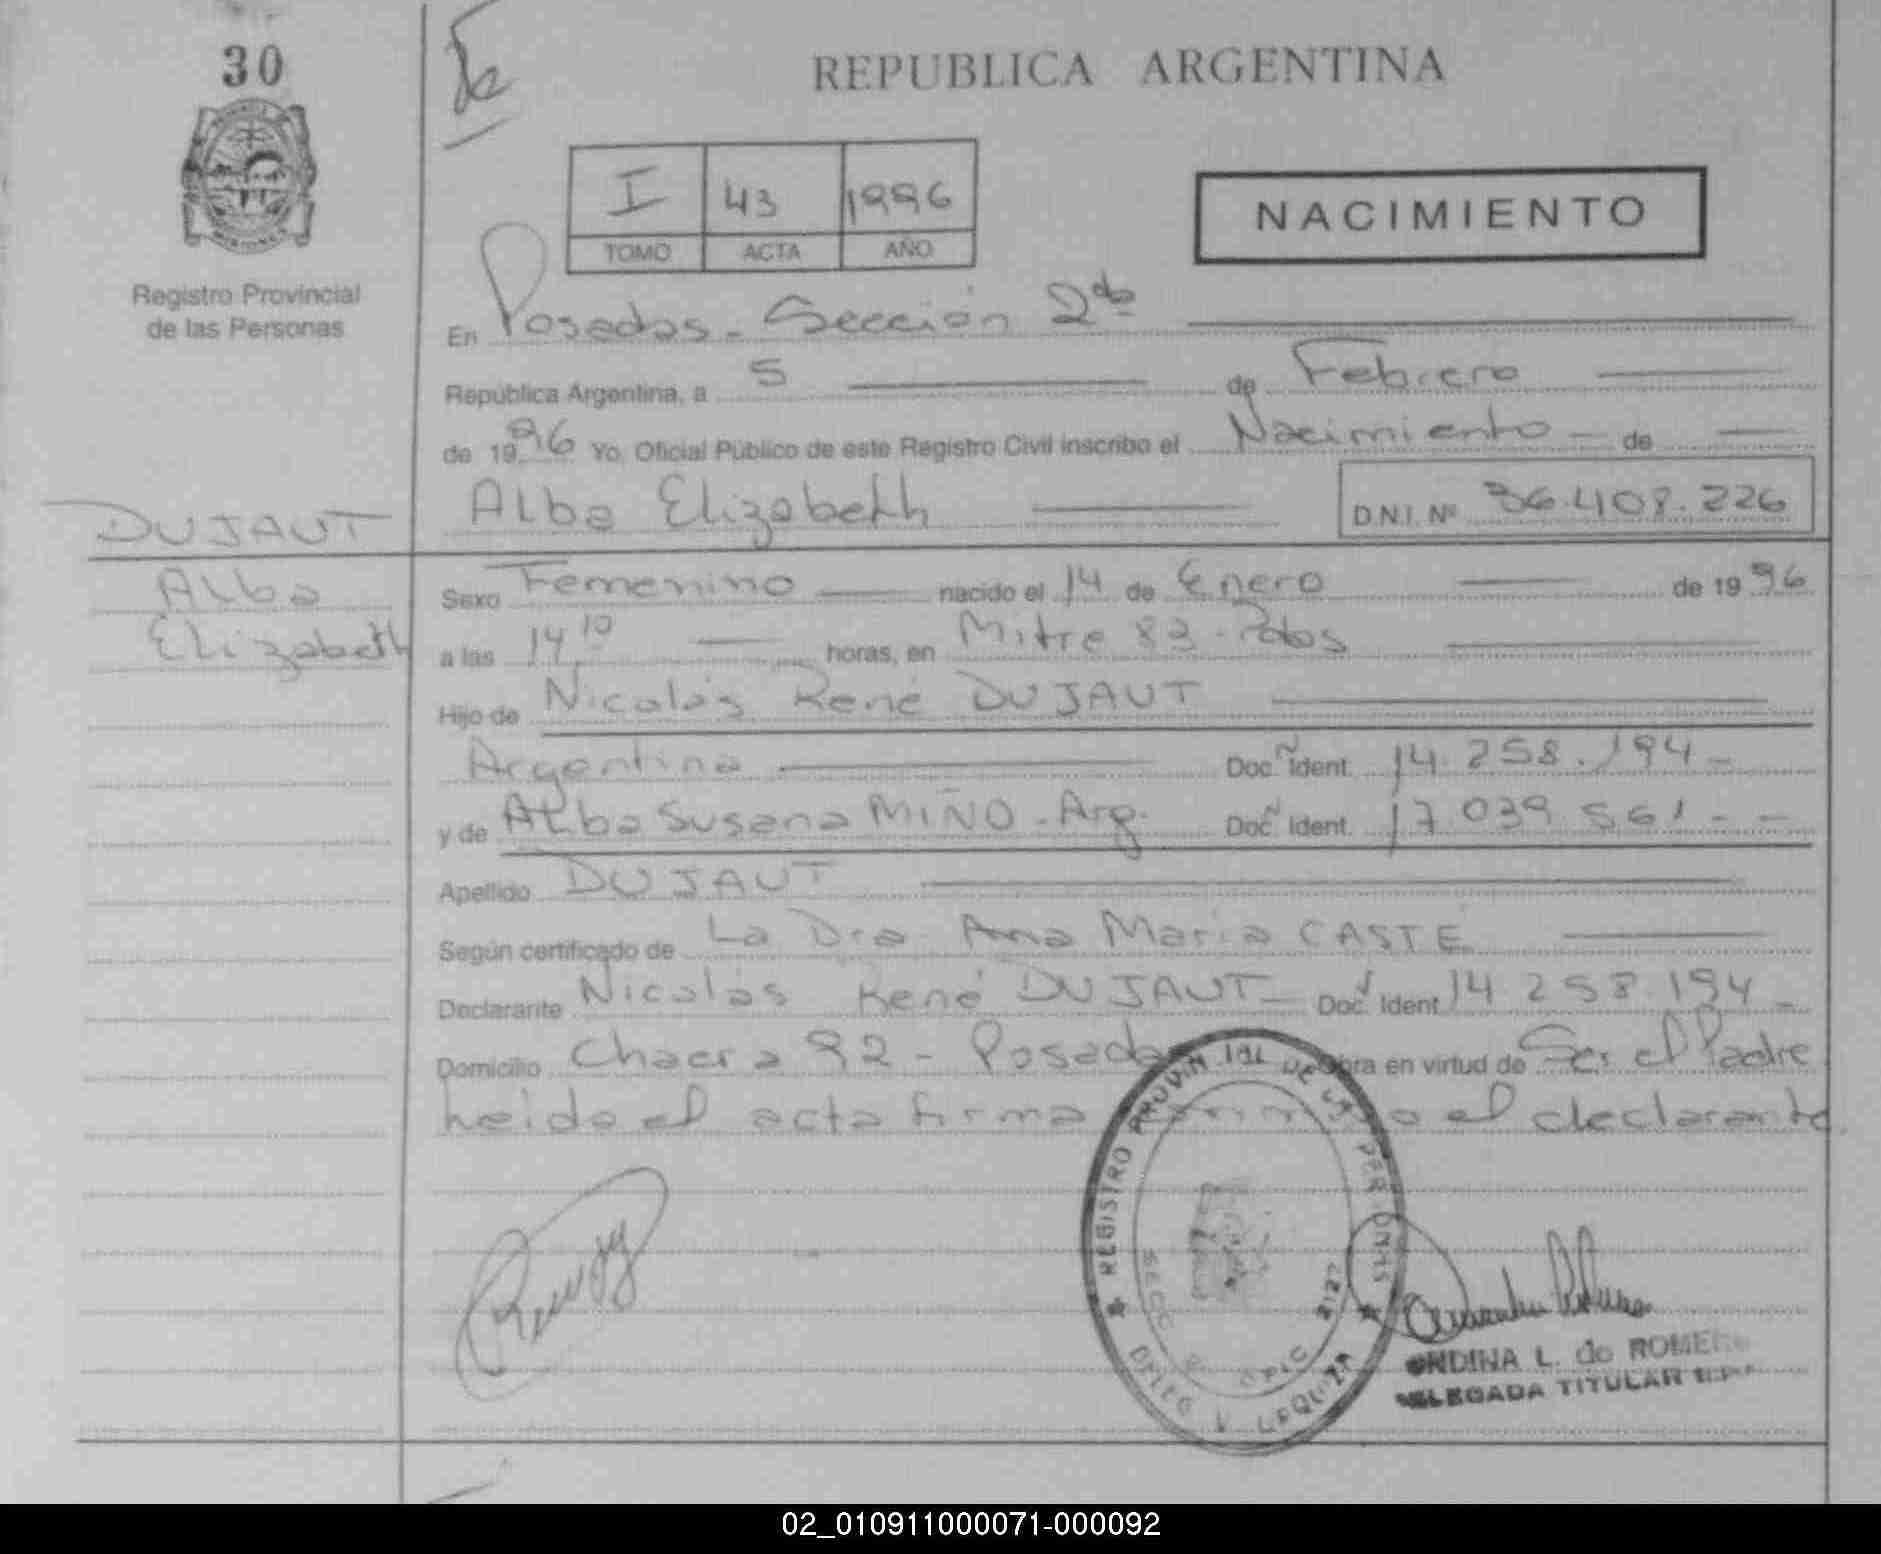 30
REPUBLICA ARGENTINA
I 43 1996
TOMO ACTA AÑO
NACIMIENTO
Registro Provincial
de las Personas
En Posadas - Sección 2da
República Argentina, a 5 de Febrero
de 1996 Yo, Oficial Público de este Registro Civil inscribo el Nacimiento de
DUJAUT
Alba Elizabeth
D.N.I. Nº 36.408.226
Alba
Elizabeth
Sexo Femenino nacido el 14 de Enero de 1996
a las 14 10 horas, en Mitre 83 - Pdas
Hijo de Nicolás René DUJAUT
Argentina Doc. Ident. 14.258.194 -
y de Alba Susana MIÑO - Arg. Doc. Ident. 17.039.561 - -
Apellido DUJAUT
Según certificado de La Dra. Ana María CASTE
Declarante Nicolás René DUJAUT - Doc. Ident. 14.258.194 -
Domicilio Chacra 92 - Posadas Obra en virtud de Ser el Padre
Leida el acta firma el declarante
REGISTRO PROVINCIAL DE LAS PERSONAS
ONDINA L. de ROMERO
DELEGADA TITULAR
02_010911000071-000092